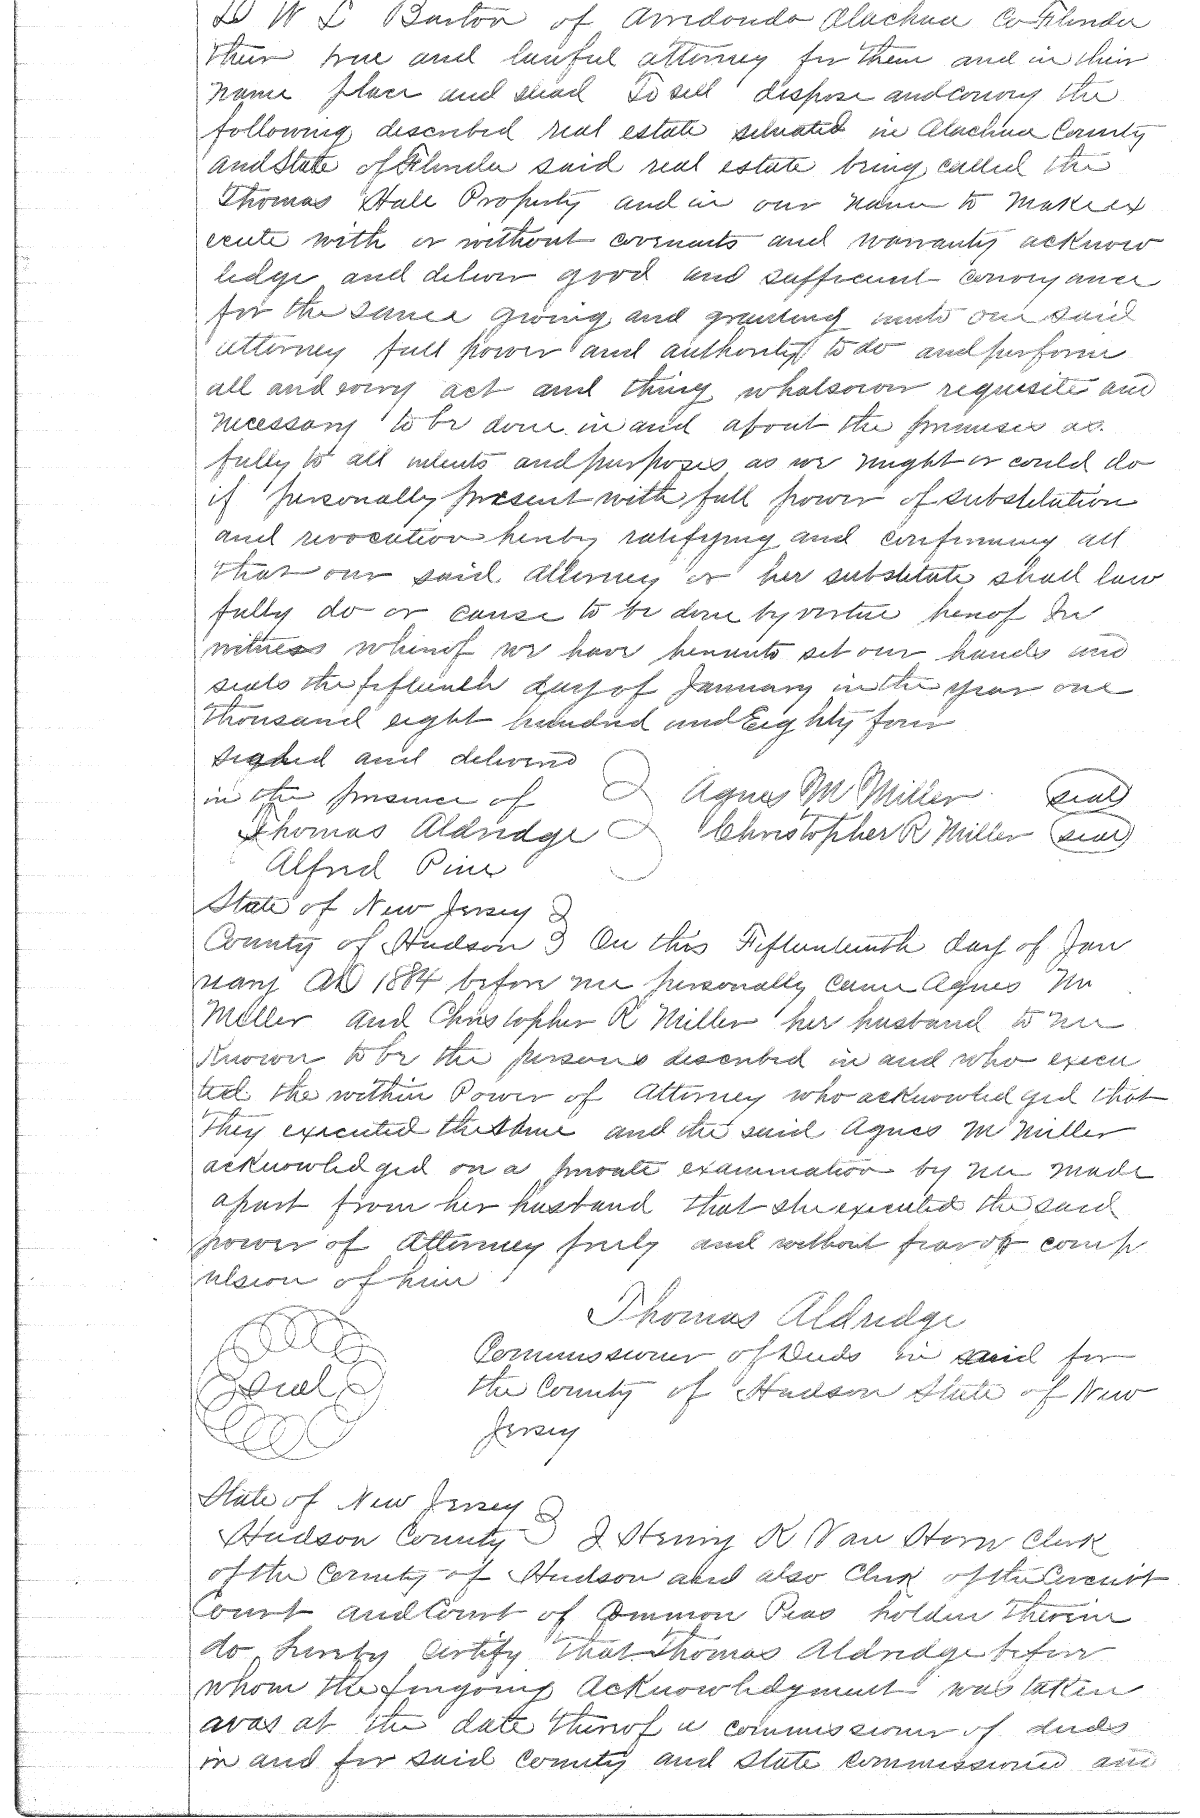 D W L Barton of Arredondo Alachua Co Florida
their true and lawful attorney for them and in their
name place and stead To sell dispose and convey the
following described real estate situated in Alachua County
and State of Florida said real estate being called the
Thomas Hale Property and in our name to make ex
ecute with or without covenants and warranty acknow
ledge and deliver good and sufficient conveyance
for the same giving and granting unto our said
attorney full power and authority to do and perform
all and every act and thing whatsoever requisite and
necessary to be done in and about the premises as
fully to all intents and purposes as we might or could do
if personally present with full power of substitution
and revocation hereby ratifying and confirming all
that our said Attorney or her substitute shall law
fully do or cause to be done by virtue hereof In
witness whereof we have hereunto set our hands and
seals the fifteenth day of January in the year one
thousand eight hundred and Eighty four
Signed and delivered
in the presence of Agnes M Miller (seal)
Thomas Aldridge Christopher R Miller (seal)
Alfred Pine
State of New Jersey
County of Hudson On this Fifteenteenth day of Jan
uary AD 1884 before me personally came Agnes M
Miller and Christopher R Miller her husband to me
Known to be the persons described in and who execu
ted the within Power of Attorney who acknowledged that
They executed the same and the said Agnes M Miller
acknowledged on a private examination by me made
apart from her husband that she executed the said
power of Attorney freely and without fear of comp
ulsion of him
Thomas Aldridge
Seal Commissioner of Deeds in said for
the County of Hudson State of New
Jersey
State of New Jersey
Hudson County I Henry K Van Horn Clerk
of the County of Hudson and also Clerk of the Circuit
Court and Court of Common Peas holden Therein
do hereby certify that Thomas Aldridge before
whom the foregoing Acknowledgment was taken
avas at the date thereof a commissioner of deeds
in and for said County and State Commissioned and